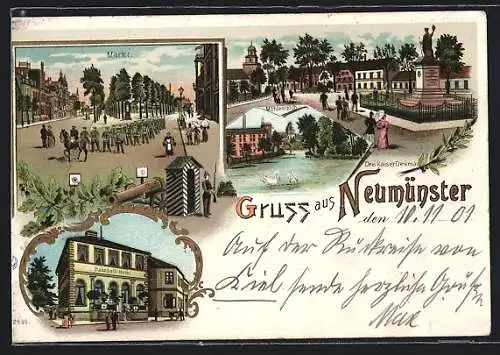 Markt.
Mühlenteich
Drei Kaiser Denkmal
Gruss aus Neumünster
den 10.11 01
Auf der Rückreise von
Kiel sende herzliche Grüße
Max
Bahnhofs Hotel